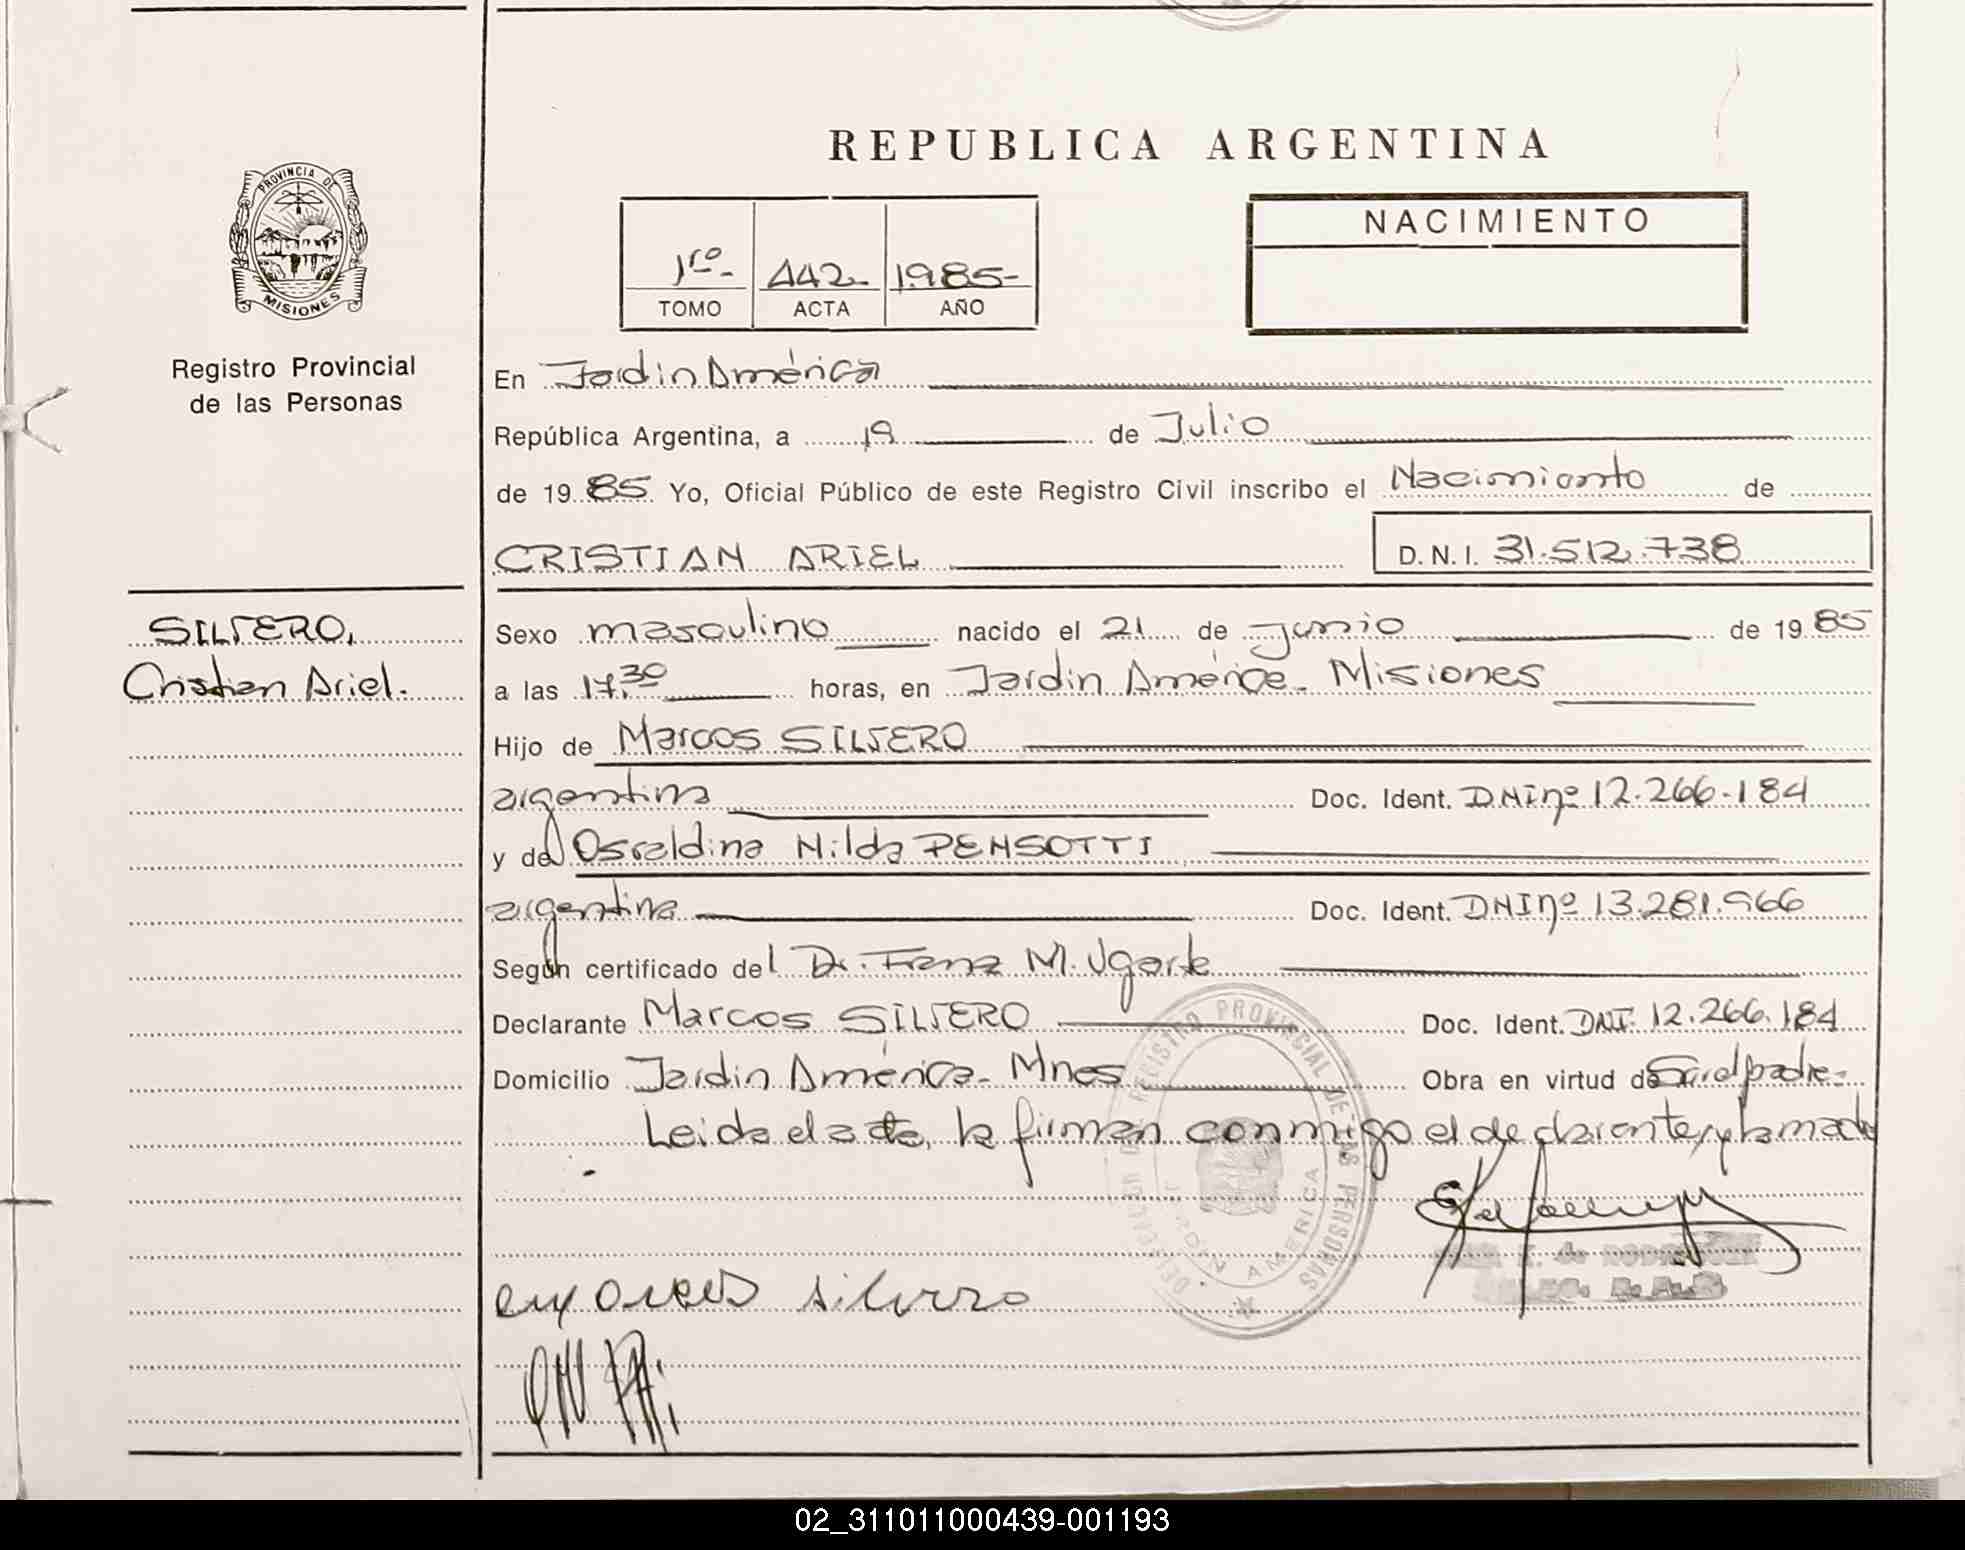 REPUBLICA ARGENTINA
PROVINCIA DE
MISIONES
Registro Provincial
de las Personas
1ro.- 442- 1985-
TOMO ACTA AÑO
NACIMIENTO
En Jardin América
República Argentina, a 19 de Julio
de 1985 Yo, Oficial Público de este Registro Civil inscribo el Nacimiento de
CRISTIAN ARIEL D.N.I. 31.512.738
SILVERO,
Cristian Ariel.
Sexo masculino nacido el 21 de junio de 1985
a las 17,30 horas, en Jardin América- Misiones
Hijo de Marcos SILVERO
argentino Doc. Ident. DNI nº 12.266.184
y de Osvaldina Nilda PENSOTTI
argentina Doc. Ident. DNI nº 13.281.966
Según certificado del Dr. Franz M. Ugarte
Declarante Marcos SILVERO Doc. Ident. DNI. 12.266.184
Domicilio Jardin América- Mnes Obra en virtud de padre-
Leida el acta, la firman conmigo el declarante, y la madre
REGISTRO PROVINCIAL DE LAS PERSONAS
JARDIN AMERICA
silvero
02_311011000439-001193